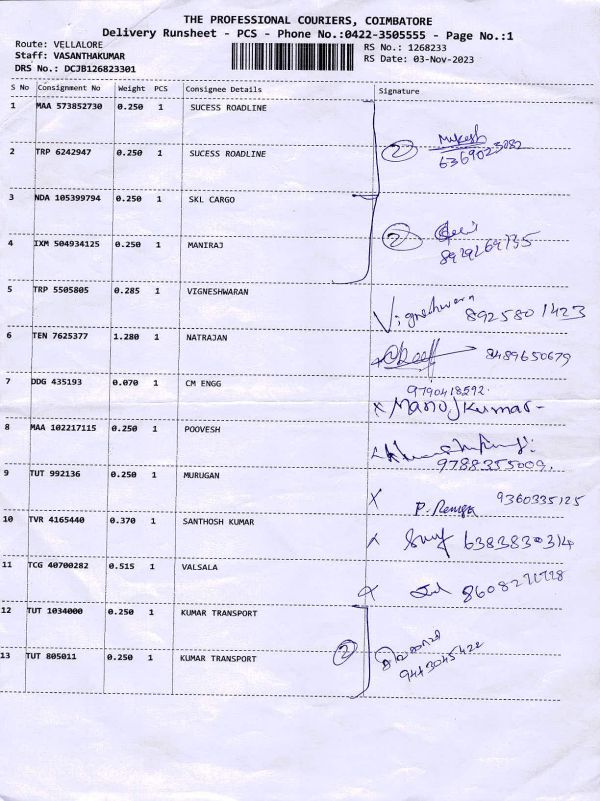 THE PROFESSIONAL COURIERS, COIMBATORE
Delivery Runsheet - PCS - Phone No.:0422-3505555 - Page No.:1
Route: VELLALORE RS No.: 1268233
Staff: VASANTHAKUMAR RS Date: 03-Nov-2023
DRS No.: DCJB126823301
S No Consignment No Weight PCS Consignee Details Signature
1 MAA 573852730 0.250 1 SUCESS ROADLINE
2 Mukesh
2 TRP 6242947 0.250 1 SUCESS ROADLINE
3 NDA 105399794 0.250 1 SKL CARGO
2
4 IXM 504934125 0.250 1 MANIRAJ
5 TRP 5505805 0.285 1 VIGNESHWARAN
Vigneshwaran 8925801423
6 TEN 7625377 1.280 1 NATRAJAN
8489650679
7 DDG 435193 0.070 1 CM ENGG
9790418592.
x Manoj Kumar-
8 MAA 102217115 0.250 1 POOVESH
9788355009.
9 TUT 992136 0.250 1 MURUGAN
x P. 9360335125
10 TVR 4165440 0.370 1 SANTHOSH KUMAR
x 6383830314
11 TCG 40700282 0.515 1 VALSALA
x
12 TUT 1034000 0.250 1 KUMAR TRANSPORT
2
13 TUT 805011 0.250 1 KUMAR TRANSPORT
9443045422